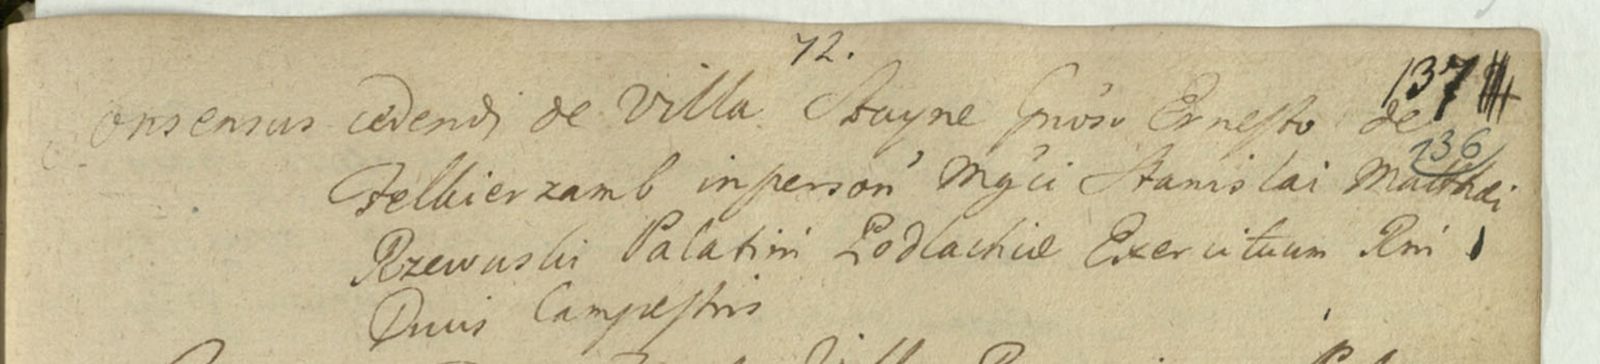 72.
137
Consensus cedendi de Villa Stayne Gnoso Ernesto de
136
Felkierzamb in person Mgci Stanislai Matthaei
Rzewuski Palatini Podlachiæ Exercituum Rni
Ducis Campestris